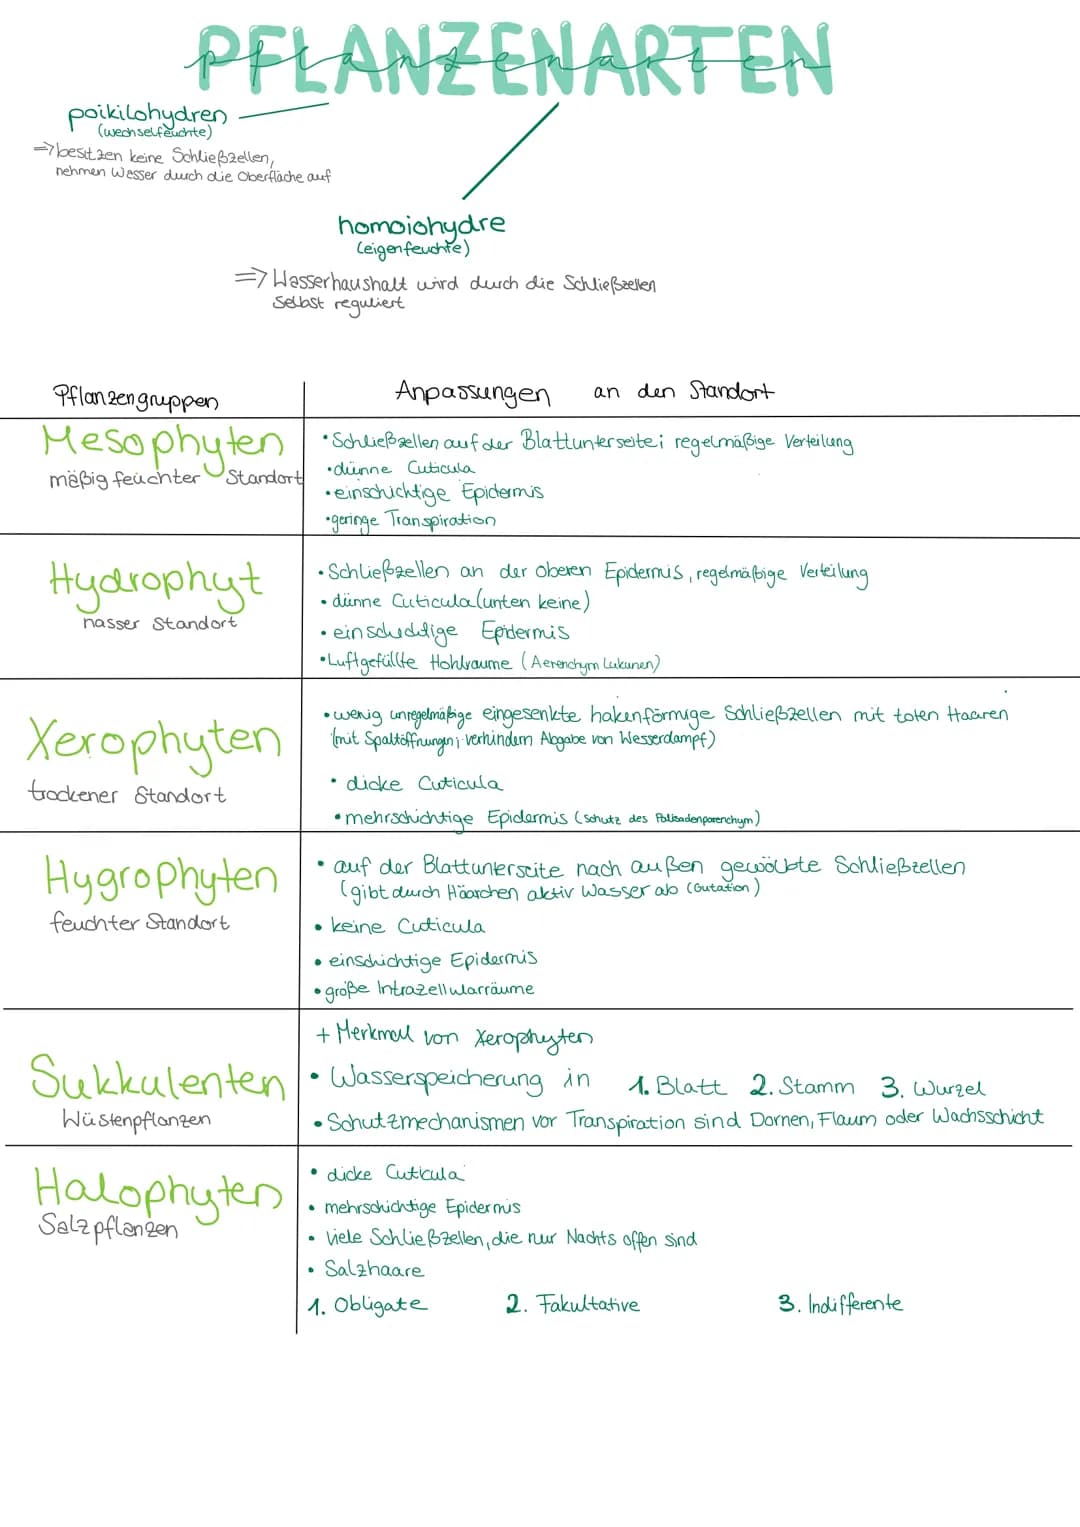 PFLANZENARTEN
pflanzenarten
poikilohydren
(wechselfeuchte)
=> besitzen keine Schließzellen,
nehmen Wasser durch die Oberfläche auf
homoiohydre
(eigenfeuchte)
=> Wasserhaushalt wird durch die Schließzellen
selbst reguliert
Pflanzengruppen
Anpassungen an den Standort
Mesophyten
mäßig feuchter Standort
• Schließzellen auf der Blattunterseite; regelmäßige Verteilung
• dünne Cuticula
• einschichtige Epidermis
• geringe Transpiration
Hydrophyt
nasser Standort
• Schließzellen an der oberen Epidermis, regelmäßige Verteilung
• dünne Cuticula (unten keine)
• einschichtige Epidermis
• Luftgefüllte Hohlräume (Aerenchym Lukunen)
Xerophyten
trockener Standort
• wenig unregelmäßige eingesenkte hakenförmige Schließzellen mit toten Haaren
(mit Spaltöffnungn; verhindern Abgabe von Wasserdampf)
• dicke Cuticula
• mehrschichtige Epidermis (Schutz des Palisadenparenchym)
Hygrophyten
feuchter Standort
• auf der Blattunterseite nach außen gewölbte Schließzellen
(gibt durch Häärchen aktiv Wasser ab (Gutation)
• keine Cuticula
• einschichtige Epidermis
• große Intrazellularräume
Sukkulenten
Wüstenpflanzen
+ Merkmal von Xerophyten
• Wasserspeicherung in 1. Blatt 2. Stamm 3. Wurzel
• Schutzmechanismen vor Transpiration sind Dornen, Flaum oder Wachsschicht
Halophyten
Salzpflanzen
• dicke Cuticula
• mehrschichtige Epidermis
• viele Schließzellen, die nur Nachts offen sind
• Salzhaare
1. Obligate 2. Fakultative 3. Indifferente